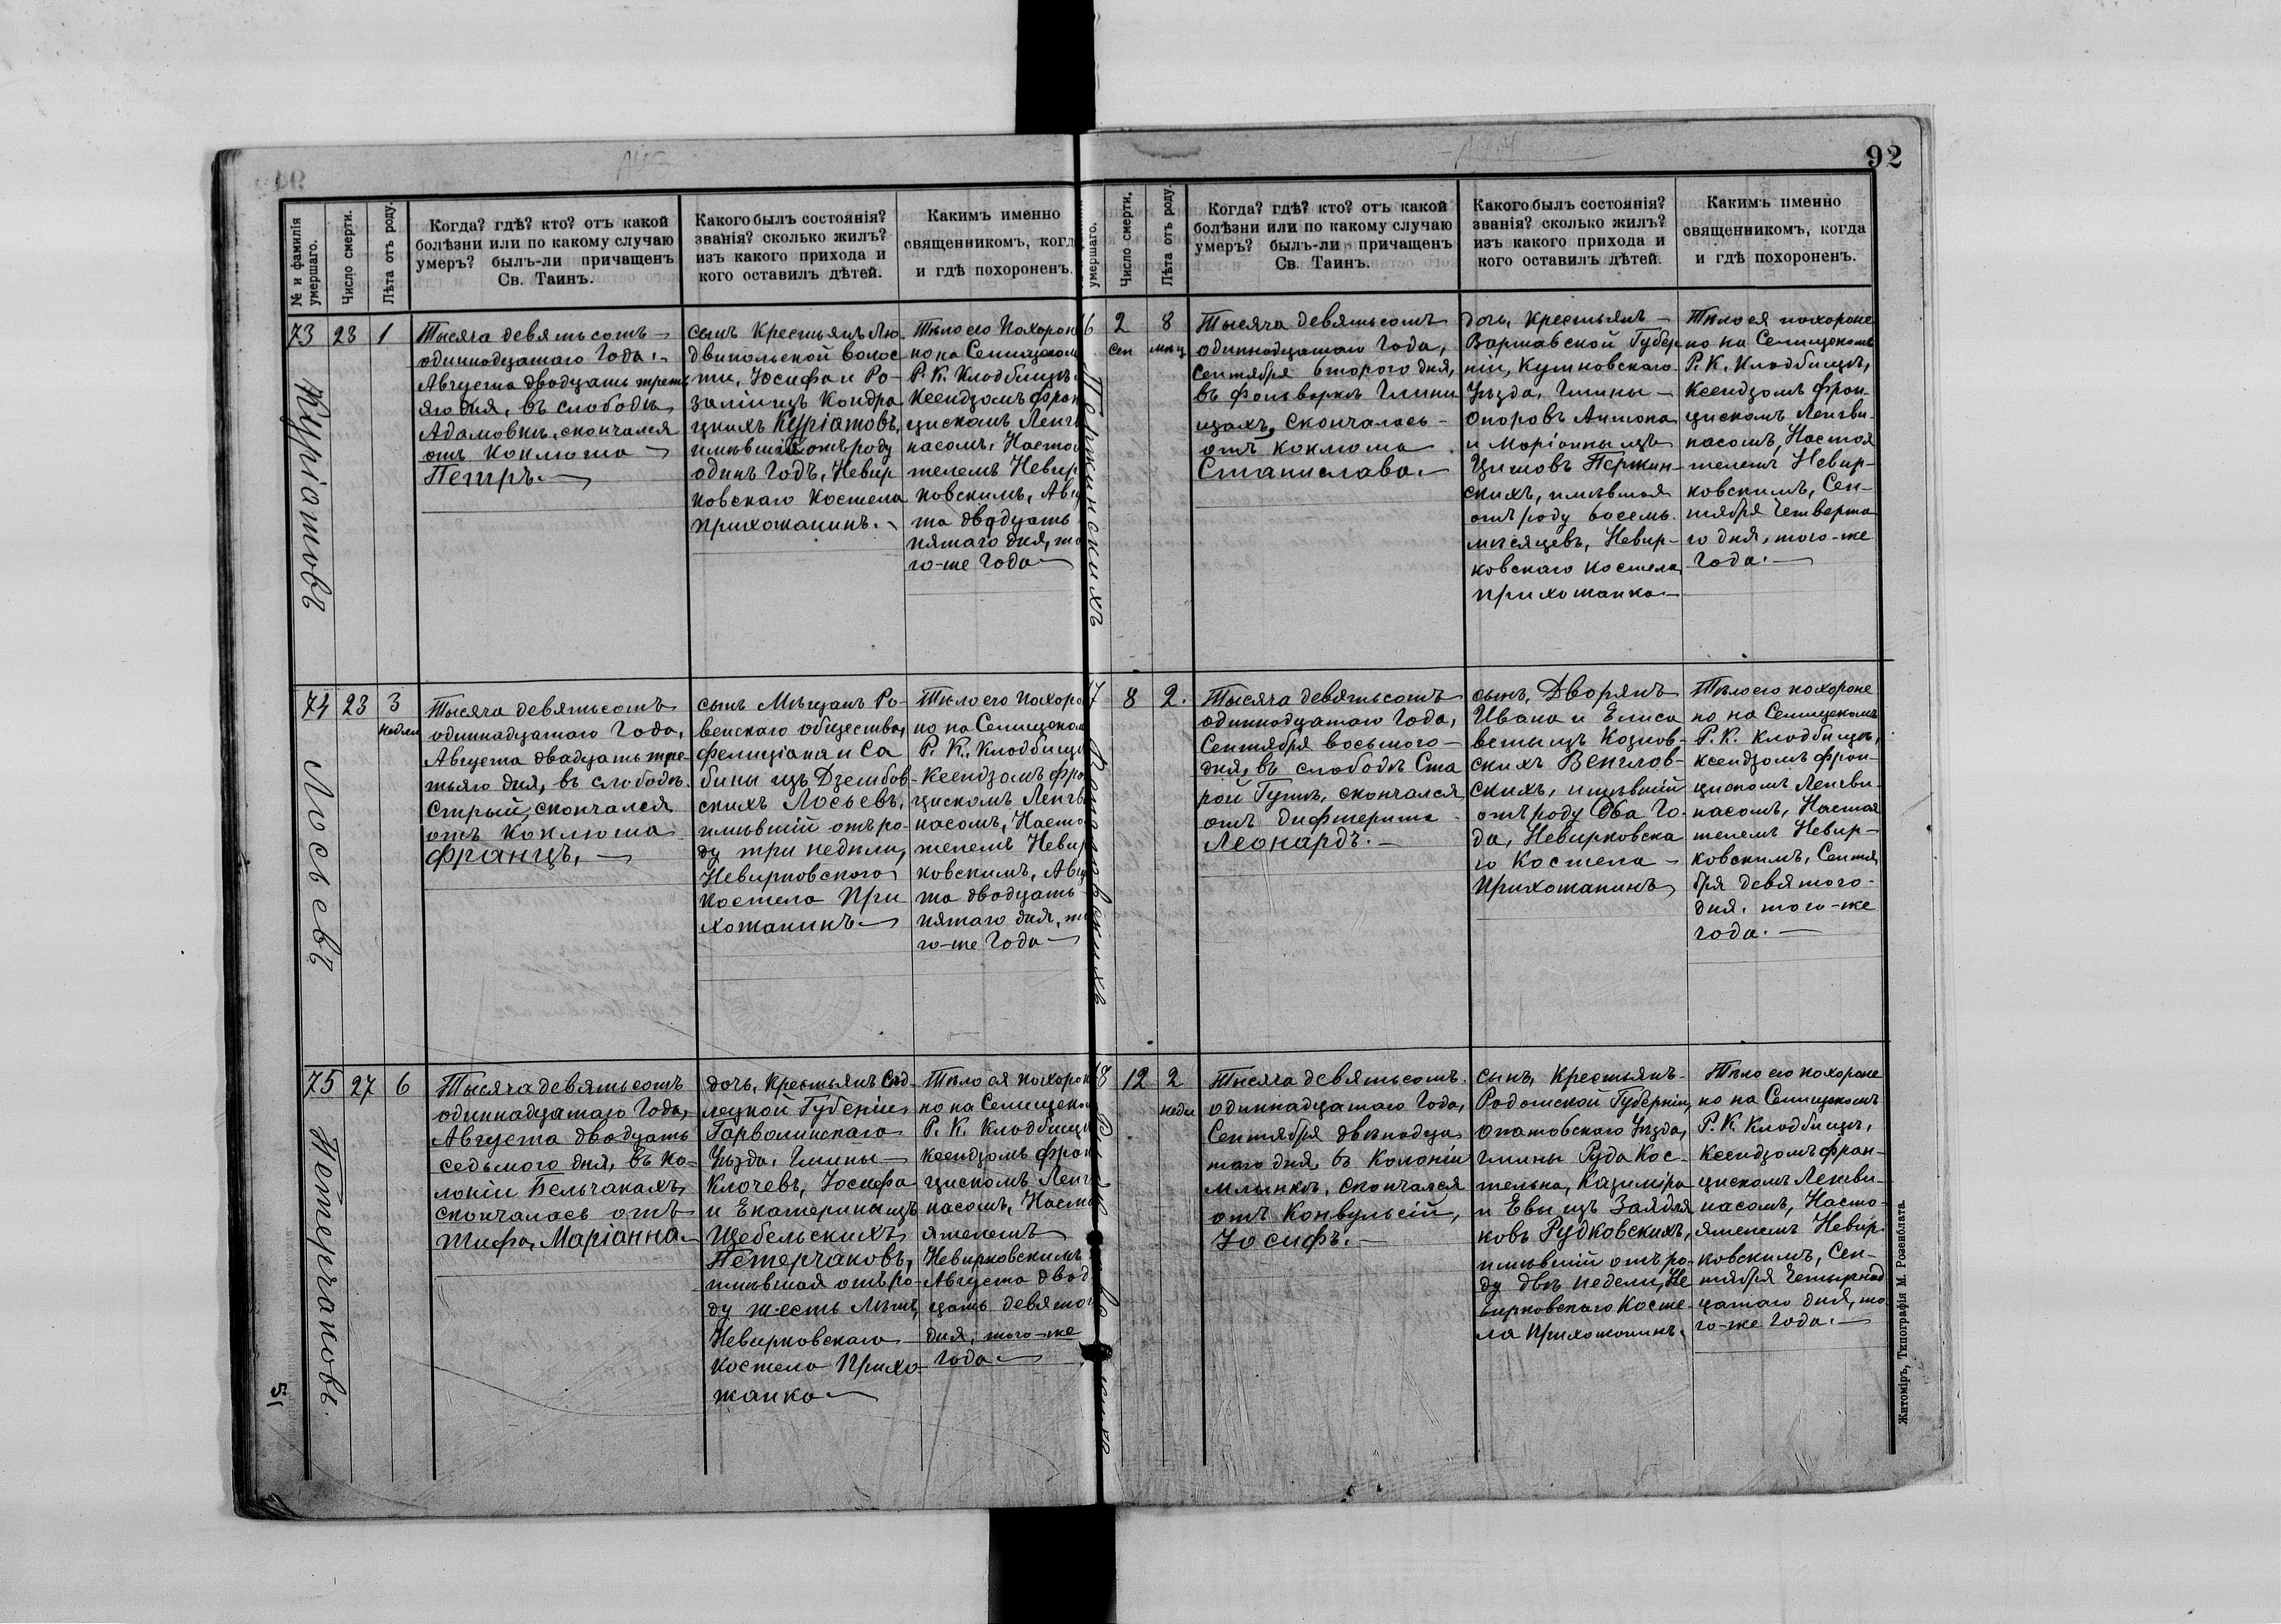 92
№ и фамилія умершаго.
Число смерти.
Лѣта отъ роду.
Когда? гдѣ? кто? отъ какой
болѣзни или по какому случаю
умеръ? былъ-ли причащенъ
Св. Таинъ.
Какого былъ состоянія?
званія? сколько жилъ?
изъ какого прихода и
кого оставилъ дѣтей.
Какимъ именно
священникомъ, когд
и гдѣ похороненъ.
73
23
1
Куріатовъ
Тысяча девятьсотъ
одиннадцатаго Года,
Августа двадцать треть
яго дня, въ слободѣ
Адамовкѣ, скончался
отъ коклюша
Петръ.
сынъ Крестьянъ Лю
двипольской волос
ти, Іосифа и Ро-
заліи изъ Кондра
цкихъ Куріатовъ,
имѣвшій отъ роду
одинъ Годъ, Невир
ковскаго Костела
прихожанинъ.
Тѣло его Похорон
но на Селищском
Р. К. Кладбищѣ
Ксендзомъ Фран
цискомъ Ленгв
насомъ, Настоя
телемъ Невир
ковскимъ, Авгу
та двадцать
пятаго дня, то
го-же Года
74
23
3
недели
Лосьевъ
Тысяча девятьсотъ
одиннадцатаго Года,
Августа двадцать тре
тьяго дня, въ слободѣ
Стрый, скончался
отъ коклюша
Францъ,
сынъ Мѣщанъ Ро-
венскаго общества,
Фелиціана и Са
бины изъ Дзембов-
скихъ Лосьевъ,
имѣвшій отъ ро-
ду три недѣли,
Невирковскаго
костела При
хожанинъ
Тѣло его Похоро
но на Селищском
Р. К. Кладбищѣ
Ксендзомъ Фра
цискомъ Ленгв
насомъ, Насто
телемъ Невир
ковскимъ, Авгу
та двадцать
пятаго дня, то
го-же Года
75
27
6
Петерчаковъ
Тысяча девятьсотъ
одиннадцатаго Года,
Августа двадцать
седьмого дня, въ Ко-
лоніи Бельчакахъ,
скончалась отъ
Тифа, Маріанна
дочь, Крестьянъ Сѣд-
лецкой Губеніи,
Гарволинскаго
Уѣзда, Гмины
Клочевъ, Іосифа
и Екатерины изъ
Щебельскихъ
Петерчаковъ,
имѣвшая отъ ро-
ду шесть Лѣтъ,
Невирковскаго
Костела Прихо
жанка
Тѣло ея похорон
но на Селищском
Р. К. Кладбищѣ
Ксендзомъ Фран
цискомъ Ленг
насомъ, Насто
ятелемъ
Невирковскимъ
Августа двад
цать девятог
дня, того-же
Года
умершаго.
Число смерти.
Лѣта отъ роду.
Когда? гдѣ? кто? отъ какой
болѣзни или по какому случаю
умеръ? былъ-ли причащенъ
Св. Таинъ.
Какого былъ состоянія?
званія? сколько жилъ?
изъ какого прихода и
кого оставилъ дѣтей.
Какимъ именно
священникомъ, когда
и гдѣ похороненъ.
6
2
Сен
8
мѣсц
Пержинскихъ
Тысяча девятьсотъ
одиннадцатаго Года,
Сентября второго дня,
въ Фольваркѣ Глини
щахъ, скончалась
отъ коклюша
Станислава.
дочь, Крестьянъ
Варшавской Губер
ніи, Кутновскаго
Уѣзда, Гмины
Опоровъ Антона
и Маріанны изъ
Цитовъ Пержин-
скихъ, имѣвшая
отъ роду восемь
мѣсяцевъ, Невир-
ковскаго Костела,
прихожанка
Тѣло ея похороне
но на Селищскомъ
Р. К. Кладбищѣ,
Ксендзомъ Фран-
цискомъ Ленгви-
насомъ, Настоя
телемъ Невир-
ковскимъ, Сен-
тября Четверта
го дня, того-же
Года.
7
8
2.
Тысяча девятьсотъ
одиннадцатаго Года,
Сентября восьмого
дня, въ слободѣ Ста
рой Гутѣ, скончался
отъ дифтерита
Леонардъ.
сынъ, Дворянъ
Ивана и Елиса
веты изъ Кознов-
скихъ Венглов-
скихъ, имѣвшій
отъ роду Два Го-
да, Невирковска
го Костела
Прихожанинъ
Тѣло его похороне
но на Селищскомъ
Р. К. Кладбищѣ,
Ксендзомъ Фран-
цискомъ Ленгви-
насомъ, Настоя
телемъ Невир-
ковскимъ, Сентя
бря девятого
дня, того-же
года.
8
12
2
недл
Тысяча девятьсотъ
одиннадцатаго Года,
Сентября двѣнадца
таго дня, въ Колоніи
Млынкѣ, скончался
отъ Конвульсій,
Іосифъ.
сынъ, Крестьянъ
Радомской Губерніи,
Опатовскаго Уѣзда,
Гмины Руда Кос-
тельна, Казиміра
и Евы изъ Заядля
ковъ Рудковскихъ,
имѣвшій отъ ро-
ду двѣ недели, Не
вирковскаго Косте-
ла Прихожанинъ.
Тѣло его похороне
но на Селищскомъ
Р. К. Кладбищѣ,
Ксендзомъ Фран-
цискомъ Ленгви-
насомъ, Насто-
ятелемъ Невир-
ковскимъ, Сен-
тября Четырнад
цатаго дня, то
го-же Года.
Житоміръ, Типографія М. Розенблата.